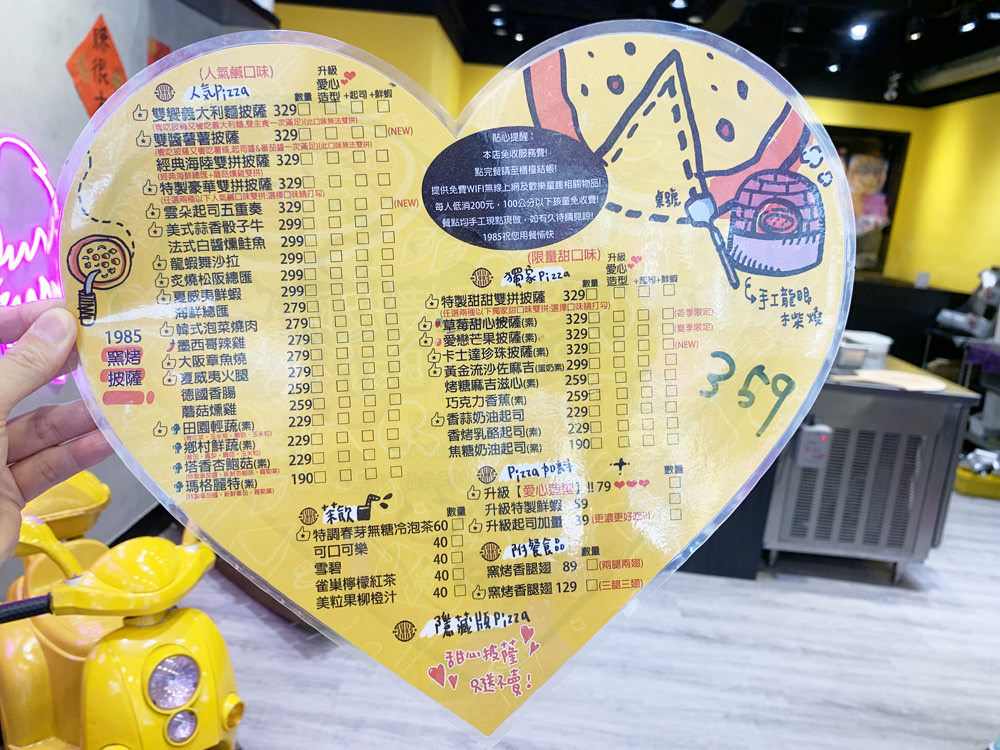 賺很大
(人氣鹹口味)
人氣Pizza
數量 升級愛心造型 +起司 +鮮蝦
雙饗義大利麵披薩 329
雙醬薯薯披薩 329 (NEW)
經典海陸雙拼披薩 329
(經典海鮮總匯+蘑菇燻雞雙拼)
特製豪華雙拼披薩 329
(任選兩種以下人氣鹹口味雙拼:選擇口味請打勾)
雲朵起司五重奏 329 (NEW)
美式蒜香骰子牛 299
法式白醬燻鮭魚 299
龍蝦舞沙拉 299
炙燒松阪總匯 299
夏威夷鮮蝦 299
海鮮總匯 279
韓式泡菜燒肉 279
墨西哥辣雞 279
大阪章魚燒 279
夏威夷火腿 279
德國香腸 259
蘑菇燻雞 259
田園輕蔬(素) 229
鄉村鮮蔬(素) 229
塔香杏鮑菇(素) 229
瑪格麗特(素) 190
1985
窯烤
披薩
貼心提醒:
本店免收服務費!
點完餐請至櫃檯結帳!
提供免費WIFI無線上網及歡樂童趣相關物品!
每人低消200元,100公分以下孩童免收費!
餐點均手工現點現做,如有久待請見諒!
1985祝您用餐愉快
桌號
手工龍眼
木柴燒
359
(限量甜口味)
獨家Pizza
數量 升級愛心造型 +起司 +鮮蝦
特製甜甜雙拼披薩 329
(任選兩種以下獨家甜口味雙拼:選擇口味請打勾)
草莓甜心披薩(素) 329 (冬季限定)
愛戀芒果披薩(素) 329 (夏季限定)
卡士達珍珠披薩(素) 329 (NEW)
黃金流沙佐麻吉(蛋奶素) 299
烤糖麻吉滋心(素) 259
巧克力香蕉(素) 259
香蒜奶油起司 229
香烤乳酪起司(素) 229
焦糖奶油起司(素) 190
Pizza加料 數量
升級【愛心造型】!! 79
升級特製鮮蝦 59
升級起司加量 39 (更濃更好吃!!)
附餐食品 數量
窯烤香腿翅 89 (兩腿兩翅)
窯烤香腿翅 129 (三腿三翅)
茶飲 數量
特調春芽無糖冷泡茶 60
可口可樂 40
雪碧 40
雀巢檸檬紅茶 40
美粒果柳橙汁 40
隱藏版Pizza
甜心披薩
只送不賣!